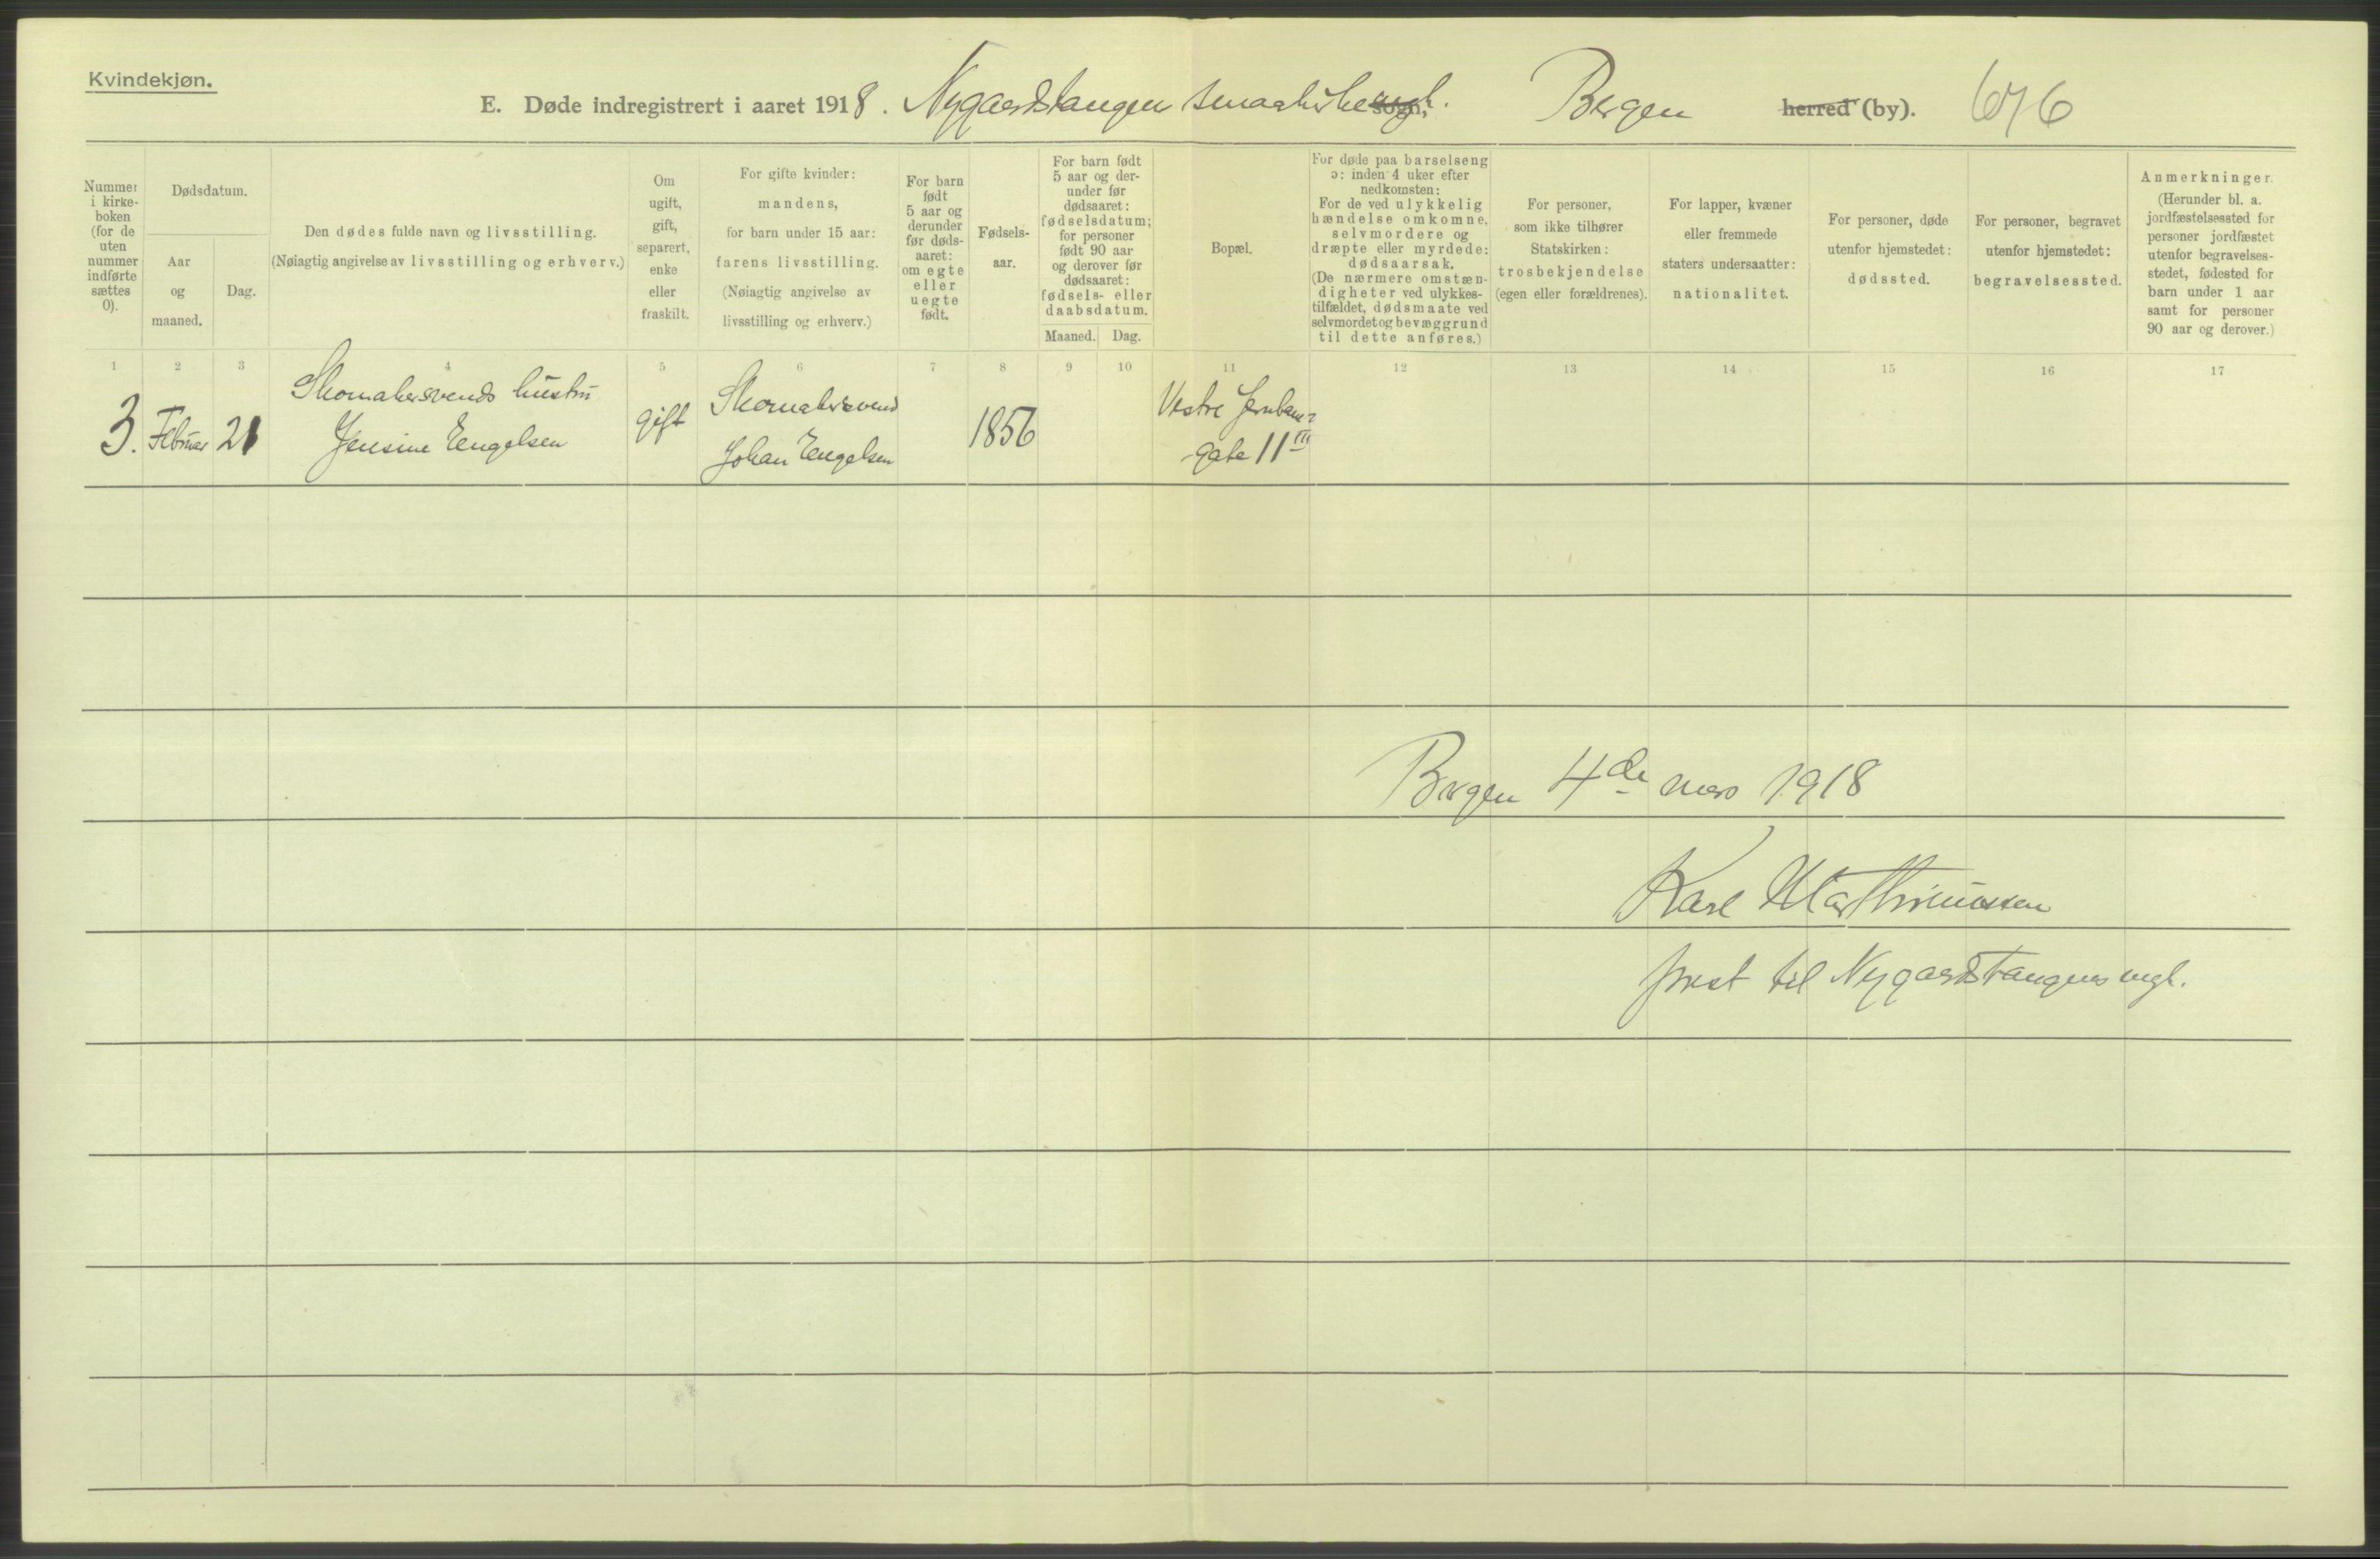 Kvindekjøn.
E. Døde indregistrert i aaret 1918. Nygaardstangen smaakirke sogn, Bergen herred (by). 676
Nummer
i kirke-
boken
(for de
uten
nummer
indførte
sættes
0).
Dødsdatum.
Aar
og
maaned.
Dag.
Den dødes fulde navn og livsstilling.
(Nøiagtig angivelse av livsstilling og erhverv.)
Om
ugift,
gift,
separert,
enke
eller
fraskilt.
For gifte kvinder:
mandens,
for barn under 15 aar:
farens livsstilling.
(Nøiagtig angivelse av
livsstilling og erhverv.)
For barn
født
5 aar og
derunder
før døds-
aaret:
om egte
eller
uegte
født.
Fødsels-
aar.
For barn født
5 aar og der-
under før
dødsaaret:
fødselsdatum;
for personer
født 90 aar
og derover før
dødsaaret:
fødsels- eller
daabsdatum.
Maaned. Dag.
Bopæl.
For døde paa barselseng
ɔ: inden 4 uker efter
nedkomsten:
For de ved ulykkelig
hændelse omkomne,
selvmordere og
dræpte eller myrdede:
dødsaarsak.
(De nærmere omstæn-
digheter ved ulykkes-
tilfældet, dødsmaate ved
selvmordet og bevæggrund
til dette anføres.)
For personer,
som ikke tilhører
Statskirken:
trosbekjendelse
(egen eller forældrenes).
For lapper, kvæner
eller fremmede
staters undersaatter:
nationalitet.
For personer, døde
utenfor hjemstedet:
dødssted.
For personer, begravet
utenfor hjemstedet:
begravelsessted.
Anmerkninger.
(Herunder bl. a.
jordfæstelsessted for
personer jordfæstet
utenfor begravelses-
stedet, fødested for
barn under 1 aar
samt for personer
90 aar og derover.)
1 2 3 4 5 6 7 8 9 10 11 12 13 14 15 16 17
3. Februar 21
Skomakersvends hustru
Jensine Engelsen
gift
Skomakersvend
Johan Engelsen
1856
Vestre Jernbane-
gate 11 III
Bergen 4de mars 1918
Karl Marthinussen
prest til Nygaardstangens mgh.